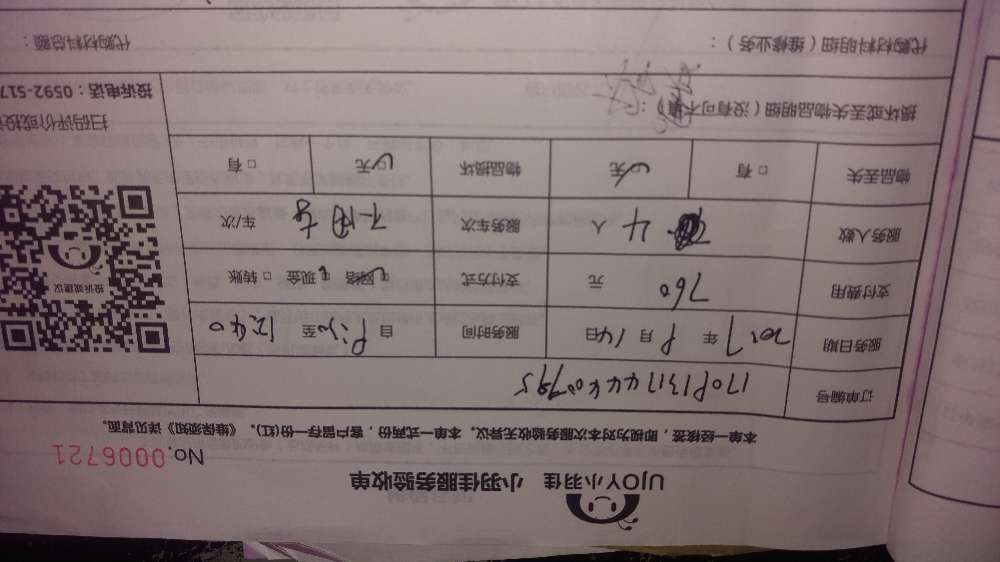 UJOY小羽佳 小羽佳服务验收单
No.0006721
本单一经核签,即视为对本次服务验收无异议。本单一式两份,客户留存一份(红)。《维保须知》详见背面。
订单编号
服务日期 2017年 9月14日 服务时间 自 至 12:40
支付费用 760 元 支付方式 网络 现金 □ 转账
服务人数 4 人 服务车次 车/次
物品丢失 □ 有 无 物品损坏 无 □ 有
损坏或丢失物品明细(没有可不填):
代购材料明细(维修业务):
代购材料总额:
投诉或建议
扫码评价或投
投诉电话:0592-517